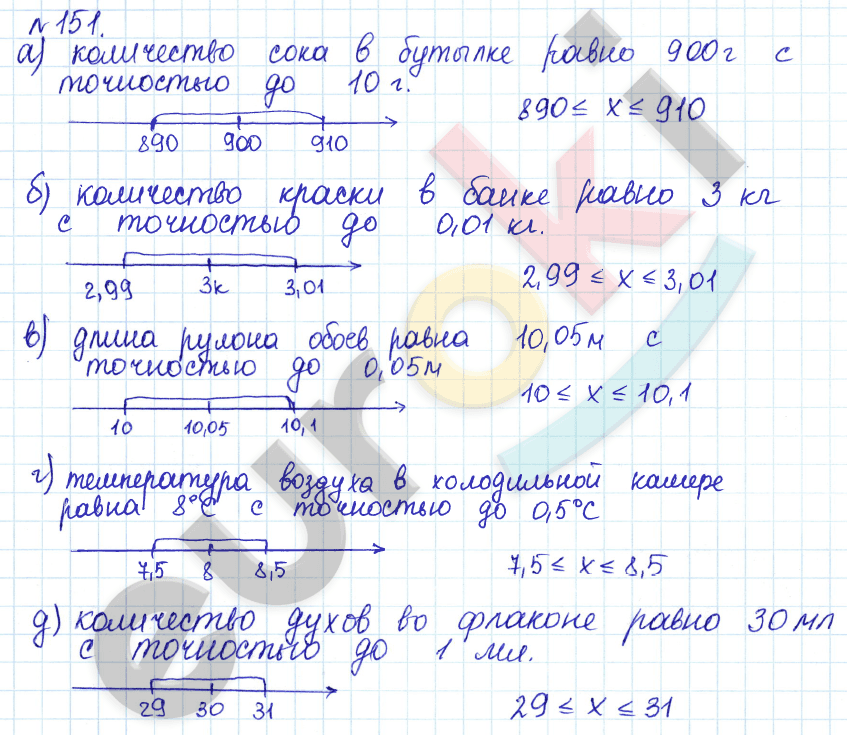 №151.
а) количество сока в бутылке равно 900г с
точностью до 10 г.
890 ≤ x ≤ 910
890 900 910
б) количество краски в банке равно 3 кг
с точностью до 0,01 кг.
2,99 ≤ x ≤ 3,01
2,99 3к 3,01
в) длина рулона обоев равна 10,05м с
точностью до 0,05м
10 ≤ x ≤ 10,1
10 10,05 10,1
г) температура воздуха в холодильной камере
равна 8°С с точностью до 0,5°С
7,5 ≤ x ≤ 8,5
7,5 8 8,5
д) количество духов во флаконе равно 30 мл
с точностью до 1 мл.
29 ≤ x ≤ 31
29 30 31
euroki